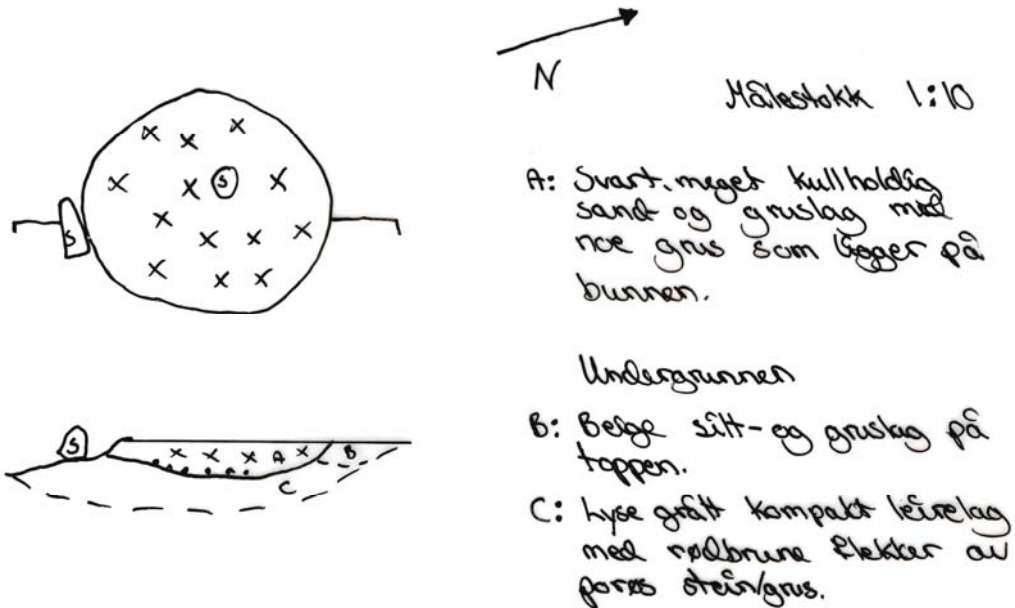 N
Målestokk 1:10
S
S
A: Svart, meget kullholdig
sand og gruslag med
noe grus som ligger på
bunnen.
Undergrunnen
B: Beige silt- og gruslag på
toppen.
C: Lyse grått kompakt leirelag
med rødbrune flekker av
porøs stein/grus.
S
A
B
C